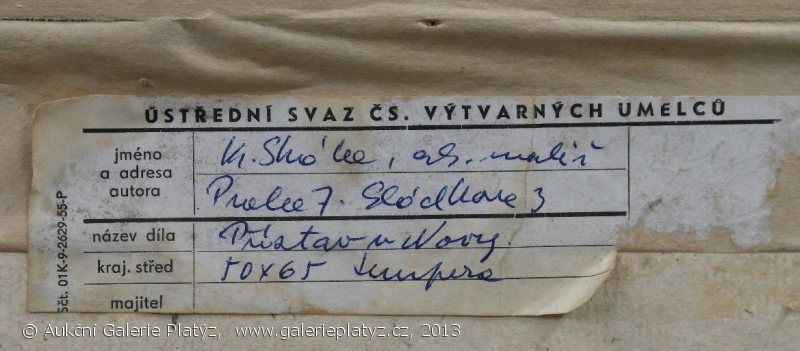 ÚSTŘEDNÍ SVAZ ČS. VÝTVARNÝCH UMELCŮ
jméno a adresa autora
K. Skála, ak. malíř
Praha 7. Sládkova 3
název díla Přístav u Novy.
kraj. střed 50x65 tempera
majitel
Sčt. 01K-9-2629-55-P
© Aukční Galerie Platýz, www.galerieplatyz.cz, 2013